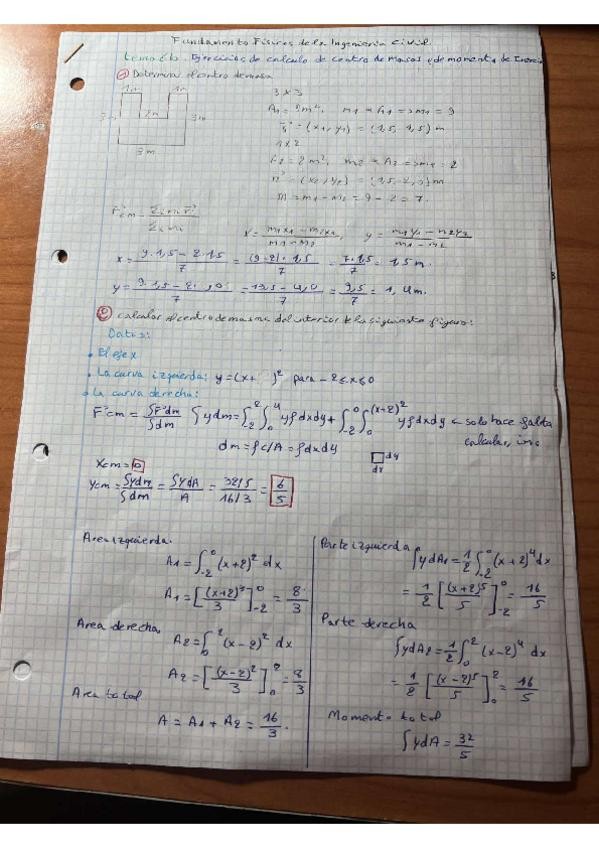 Fundamento Físicos de la Ingeniería Civil.
tema 6b. Ejercicios de calculo de centro de masas y de momento de Inercia
① Determina el centro de masa
1m 1m
3m 2m 3m
3m
3 x 3
m1 = A1 => m1 = 9
r = (x1, y1) = (1,5, 1,5) m
1 x 2
A2 = 2m², m2 = A2 => m2 = 2
m = m1 - m2 = 9 - 2 = 7.
x = (m1x1 - m2x2)/(m1 - m2), y = (m1y1 - m2y2)/(m1 - m2)
x = (9·1,5 - 2·1,5)/7 = ((9-2)·1,5)/7 = (7·1,5)/7 = 1,5 m.
= (13,5 - 4,0)/7 = 9,5/7 = 1,4m.
② calcular el centro de masa del interior de la siguiente figura:
Datos:
• El eje x
• La curva izquierda: y = (x+ )² para -2≤x≤0
• La curva derecha:
r⃗cm = ∫r⃗dm/∫dm ∫ydm = ∫₋₂² ∫₀⁴ yρdxdy + ∫₋₂⁰ ∫₀^(x-2)² yρdxdy ← solo hace falta
calcular,
dm = ρdA = ρdxdy
dy
dx
Xcm = 0
Ycm = ∫ydm/∫dm = ∫ydA/A = (32/5)/(16/3) = 6/5
Area izquierda.
A1 = ∫₋₂⁰ (x+2)² dx
A1 = [(x+2)³/3]₋₂⁰ = 8/3
Area derecha
A2 = ∫₀² (x-2)² dx
A2 = [(x-2)²/3]₀² = 8/3
Area total
A = A1 + A2 = 16/3.
Parte izquierda
∫ydA1 = 1/2 ∫₋₂⁰ (x+2)⁴ dx
= 1/2 [(x+2)⁵/5]₋₂⁰ = 16/5
Parte derecha
∫ydA2 = 1/2 ∫₀² (x-2)⁴ dx
= 1/2 [(x-2)⁵/5]₀² = 16/5
Momento total
∫ydA = 32/5